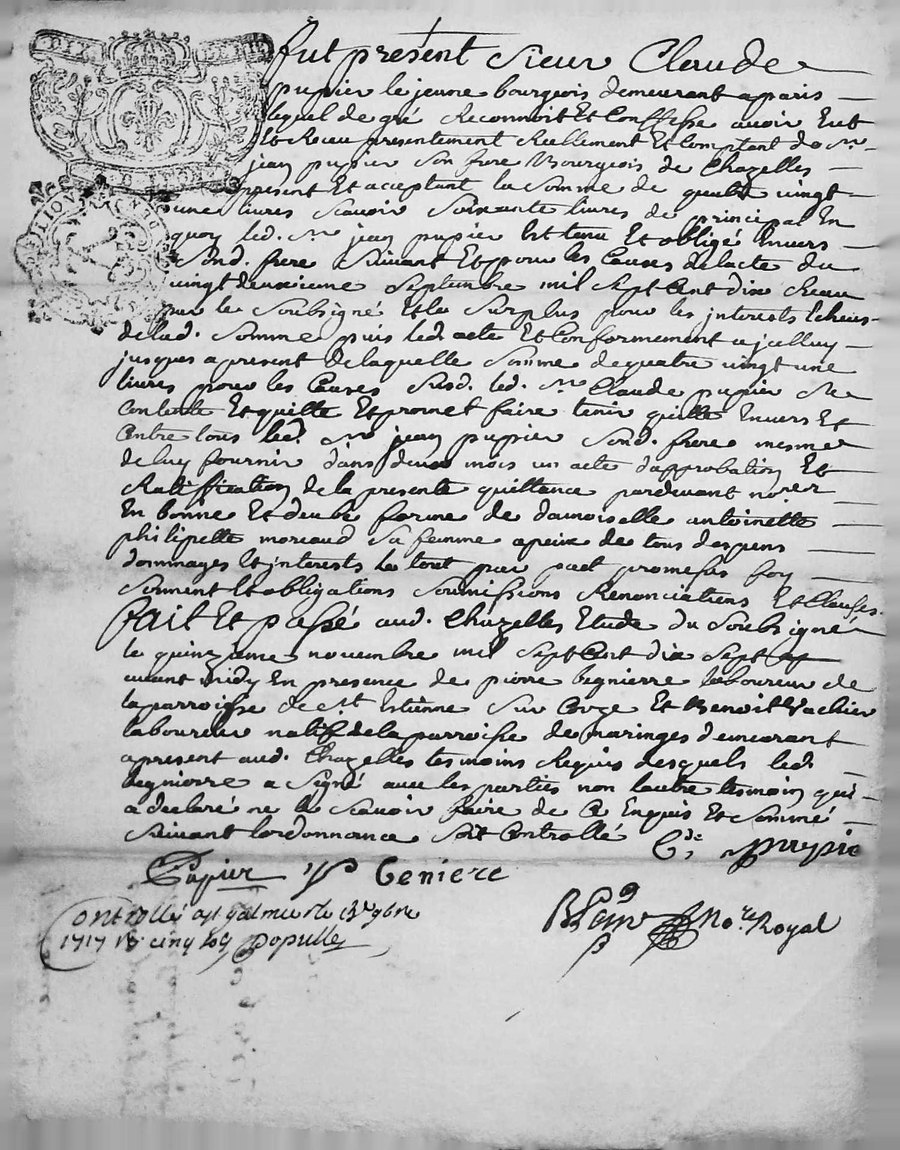 DIX DEN
LION
fut présent sieur Claude
pupier le jeune bourgeois demeurant a paris
lequel de gré Reconnoit Et Confesse avoir Eut
Et Receu presentement Reellement Et Comptant de Sr
jean pupier son frere Bourgeois de Chazelles
present Et acceptant la somme de quatre vingt
une livres scavoir soixante livres de principal En
quoy led. Sr jean pupier Est tenu Et obligé Envers
sond. frere suivant Et pour les Causes de lacte du
vingt deuxieme Septembre mil Sept Cent dix Receu
par le Soubsigné Et le surplus pour les jnterests Echeus
de lad. somme puis led. acte Et Conformement a jcelluy
jusques a present de laquelle somme de quatre vingt une
livres pour les Causes susd. led. Sr Claude pupier se
Contente Et quitte Et promet faire tenir quitte Envers Et
Contre tous led. Sr jean pupier sond. frere mesme
de luy fournir dans deux mois un acte dapprobation Et
Ratiffication de la presente quittance pardevant no.re
En bonne Et deube forme de damoiselle antoinette
philipette moreaud sa femme a peine de tous despens
dommages Et jnterests le tout par pact promesses foy
serment Et obligations soumissions Renonciations Et Clauses.
fait Et passé aud. Chazelles Etude du Soubsigné
le quinzieme novembre mil Sept Cent dix Sept
avant midy En presence de pierre begnierre laboureur de
la parroisse de St. Estienne sur Et Benoit Vachier
laboureur natif de la parroisse de maringes demeurant
a present aud. Chazelles tesmoins Requis desquels led.
begnierre a signé avec les parties non lautre tesmoin qui
a declaré ne le scavoir faire de Ce Enquis Et sommé
suivant lordonnance soit Controllé C.de pupie
Pupier Geniere
Controllé a St galmier le 9bre
1717 R cinq sols Populle
No.re Royal